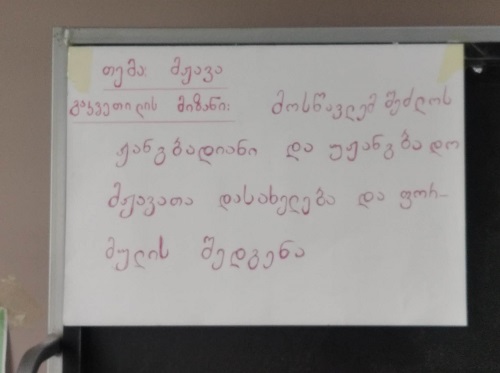 თემა: მჟავა
გაკვეთილის მიზანი: მოსწავლემ შეძლოს
ჟანგბადიანი და უჟანგბადო
მჟავათა დასახელება და ფორ-
მულის შედგენა